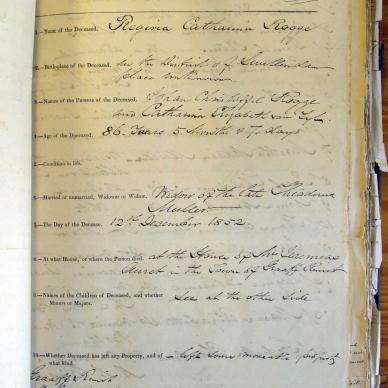 1.—Name of the Deceased, Regina Catharina Rogge
2.—Birthplace of the Deceased, in the District of Swellendam
place unknown.
3.—Names of the Parents of the Deceased, Johan Christoffel Rogge
and Catharina Elizabeth van
4.—Age of the Deceased, 86 Years 5 Months & 7 days
5.—Condition in life,
6.—Married or unmarried, Widower or Widow, Widow of the late
Muller
7.—The Day of the Decease, 12th December 1852
8.—At what House, or where the Person died, at the House of Mr Jeremias
Auret in the Town of Graaff Reinet
9.—Names of the Children of Deceased, and whether
Minors or Majors. See at the other Side
10.—Whether Deceased has left any Property, and of
what kind. left some moveable property
Graaff Reinet